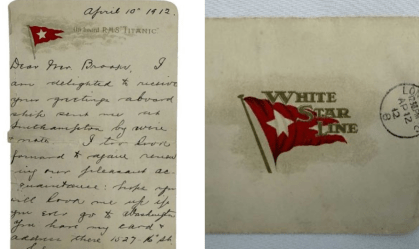 April 10th 1912.
on board R.M.S "TITANIC"
Dear Mrs I
am delighted to receive
your greetings aboard
ship sent me at
Southampton by
I too look
forward to again renew
ing our pleasant ac
quaintance: hope you
will look me up if
you ever go to Washington
You have my card &
address there 1527 16th St
WHITE
STAR
LINE
LO
AP 12
12
8